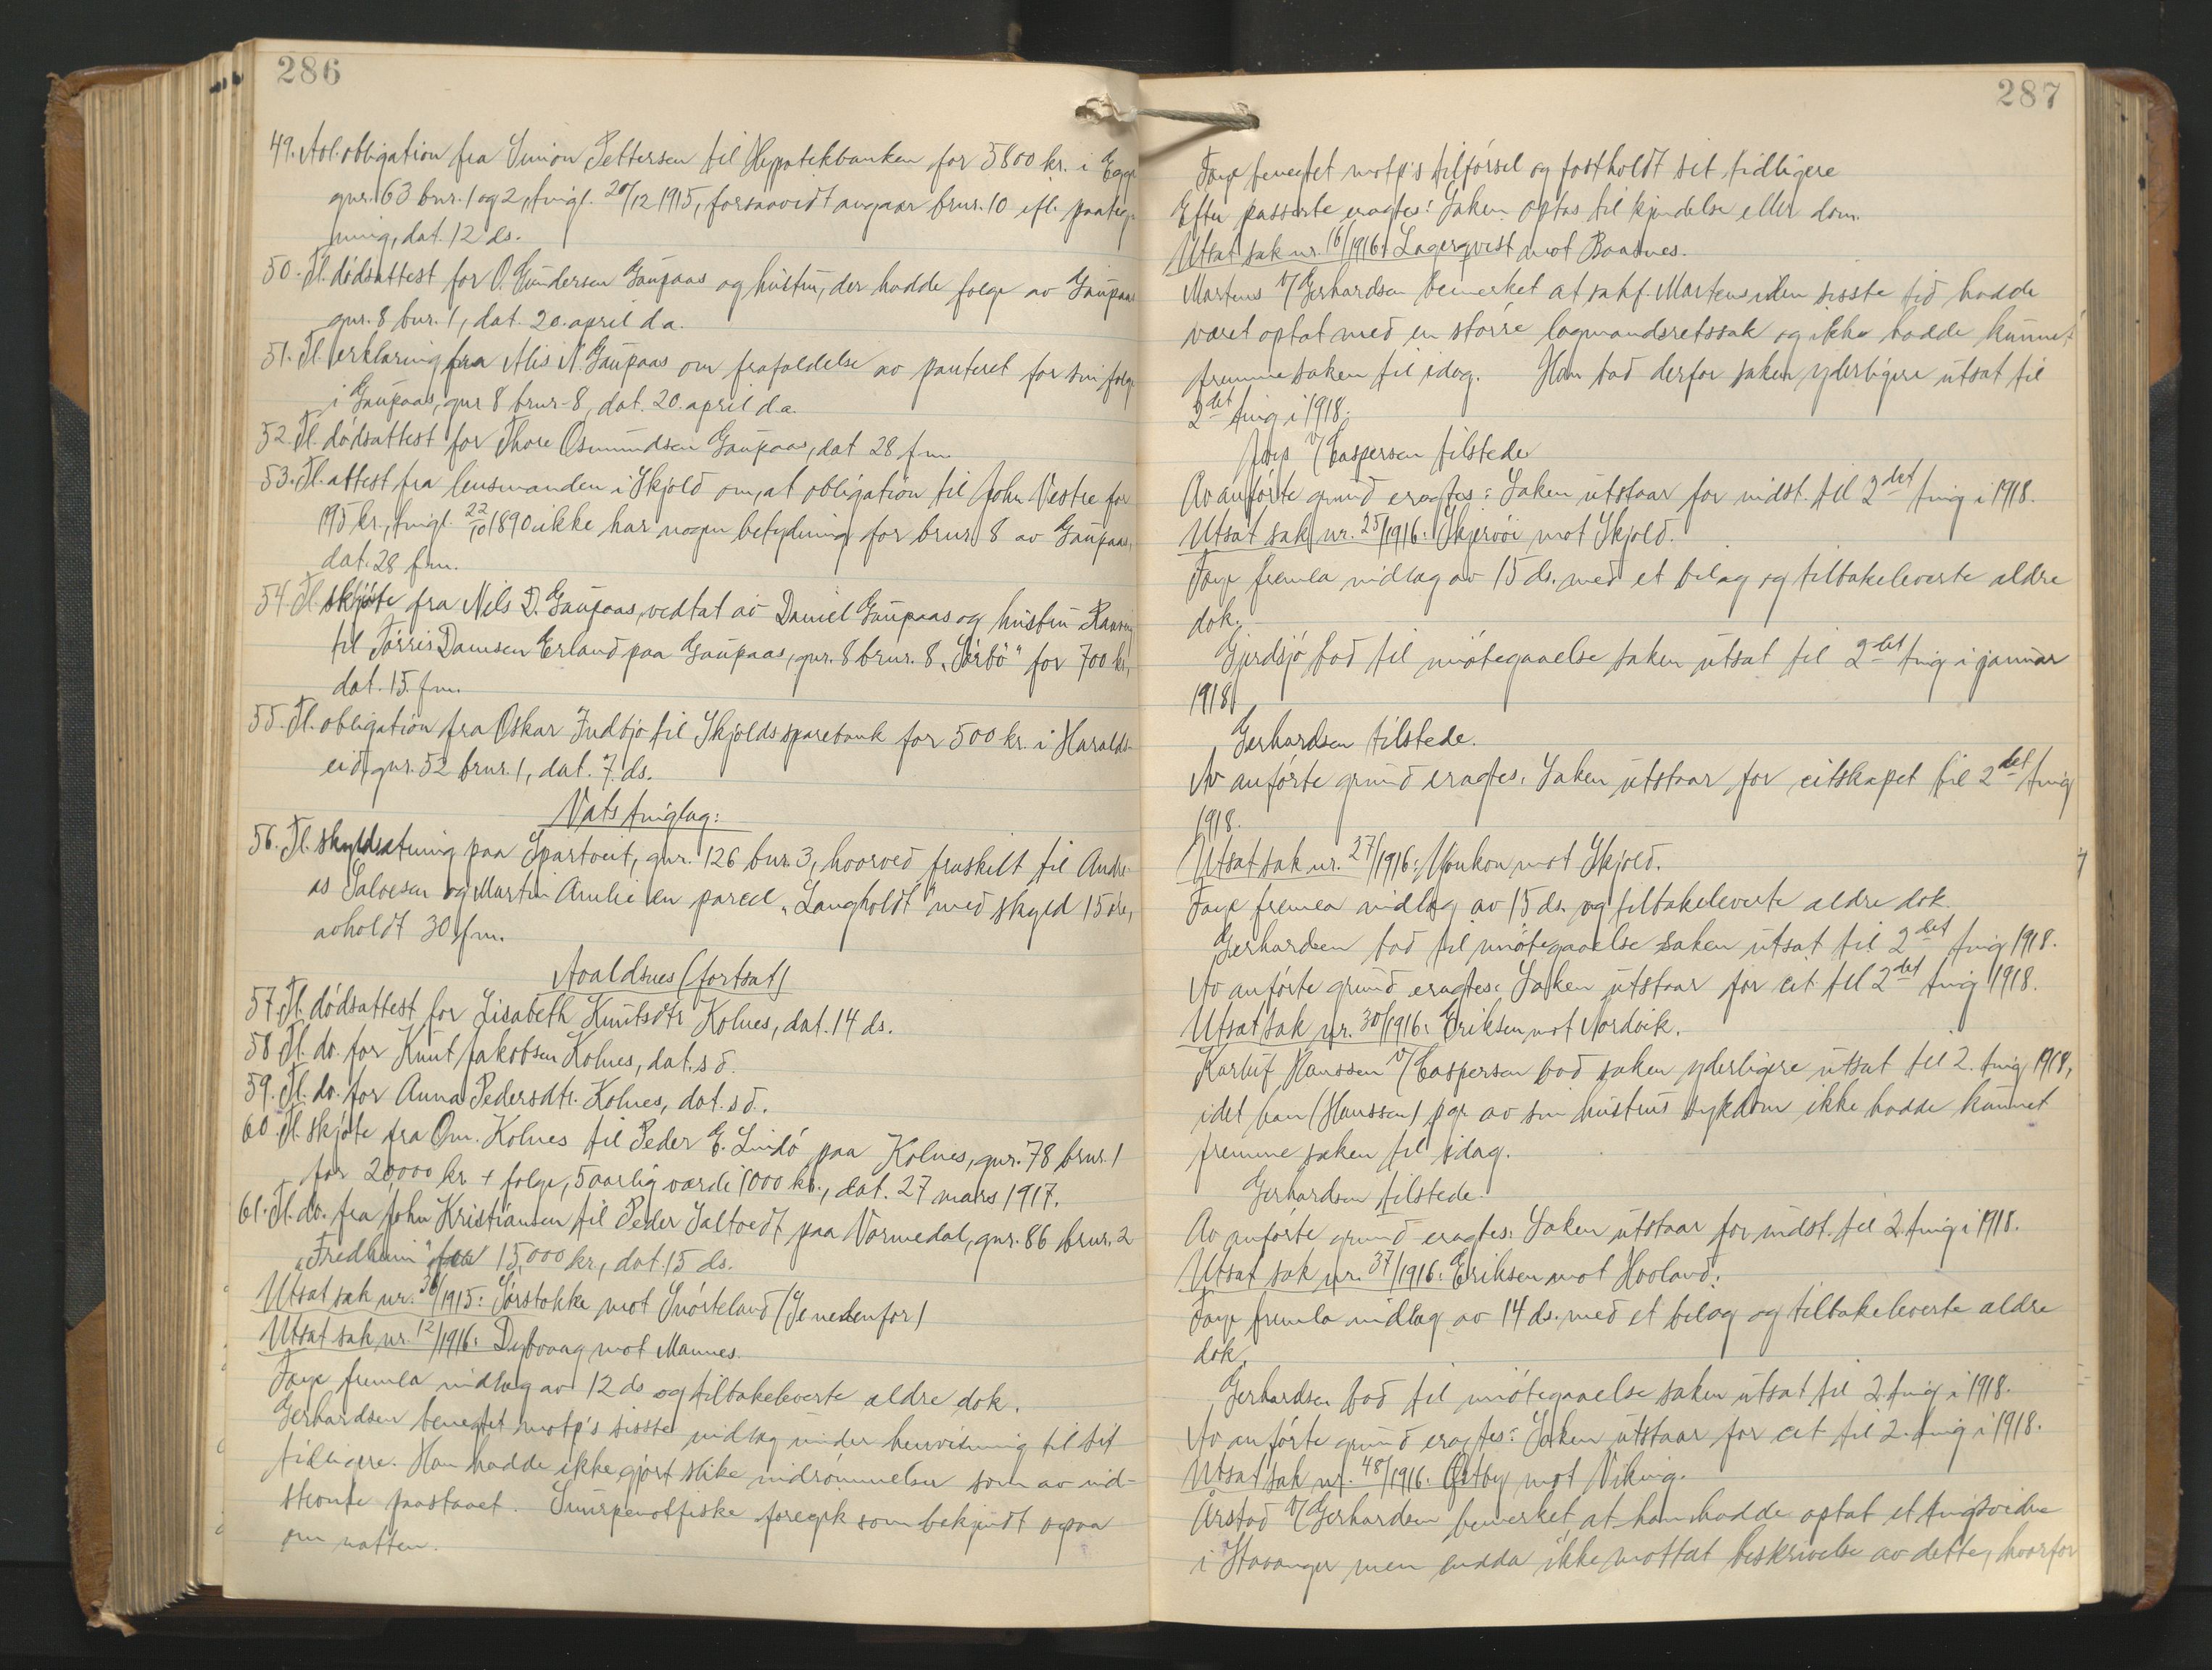 286
49. Avl. obligation fra Simon Pettersen til Hypotekbanken for 5800 kr. i Egge
gnr. 63 bnr. 1 og 2, tingl. 20/12 1915, forsaavidt angaar brnr. 10 efl. paateg-
ning, dat. 12 ds.
50. Tl. dødsattest for O. Gundersen Gaupaas og hustru, der hadde folge av Gaupaas
gnr. 8 bnr. 1, dat. 20. april d.a.
51. Tl. erklæring fra Nils N. Gaupaas om frafaldelse av panteret for sin folge
i Gaupaas, gnr 8 brnr. 8, dat. 20. april d.a.
52. Tl. dødsattest for Thore Osmundsen Gaupaas, dat 28 f.m.
53. Tl. attest fra lensmanden i Skjold om, at obligation til John Vestre for
195 kr., tingl. 22/10 1890 ikke har nogen betydning for brnr. 8 av Gaupaas,
dat. 28 f.m.
54 Tl. skjøte fra Nils D. Gaupaas, vedtat av Daniel Gaupaas og hustru
til Tørris Erland paa Gaupaas, gnr. 8 brnr. 8 „Sørbø" for 700 kr.,
dat. 15. f.m.
55. Tl. obligation fra Oskar Indbjo til Skjolds sparebank for 500 kr. i Haralds-
eid, gnr. 52 brnr. 1, dat. 7. ds.
Vats tinglag:
56. Tl. skyldsætning paa Spartveit, gnr. 126 bnr. 3, hvorved fraskilt til Andre-
as Salvesen og Martin Amlie en parcel „Langholdt" med skyld 15 øre,
avholdt 30 f.m.
Avaldsnes (fortsat)
57. Tl. dødsattest for Lisabeth Knutsdtr Kolnes, dat. 14 ds.
58 Tl. do. for Knut Jakobsen Kolnes, dat. s d.
59. Tl. do. for Anna Pedersdtr. Kolnes, dat. s d.
60. Tl. skjøte fra Om. Kolnes til Peder E. Lindø paa Kolnes, gnr. 78 brnr. 1
for 20,000 kr + folge, 5aarlig værdi 1000 kr., dat. 27 mars 1917.
61. Tl. do. fra John Kristiansen til Peder Saltvedt paa Vormedal, gnr. 86 brnr. 2
„Fredheim" for 15,000 kr., dat. 15 ds.
Utsat sak nr. 36/1915: Sørstokke mot Snørteland (Se nedenfor)
Utsat sak nr. 12/1916: Dybvaag mot Mannes.
Faye fremla indlæg av 12 ds og tilbakeleverte ældre dok.
Gerhardsen benegtet motp's sisste indlæg under henvisning til sit
tidligere. Han hadde ikke gjort slike indrømmelser som av ind-
stevnte paastaaet. Snurpenotfiske foregik som bekjendt ogsaa
om natten.
287
Faye benegtet motp's tilførsel og fastholdt sit tidligere
Efter passerte eragtes: Saken optas til kjendelse eller dom.
Utsat sak nr. 16/1916: Lagerqvist mot Baadnes.
Martens v/ Gerhardsen bemerket at sakf. Martens i den sisste tid hadde
været optat med en større lagmandsretssak og ikke hadde kunnet
fremme saken til idag. Han bad derfor saken yderligere utsat til
2det ting i 1918.
v/ Caspersen tilstede
Av anførte grund eragtes: Saken utstaar for indst. til 2det ting i 1918.
Utsat sak nr. 25/1916: Skjervøi mot Skjold.
Faye fremla indlæg av 15 ds. med et bilag og tilbakeleverte ældre
dok.
Gjerdsjø bad til imøtegaaelse saken utsat til 2det ting i januar
1918.
Gerhardsen tilstede.
Av anførte grund eragtes: Saken utstaar for citskapet til 2det ting
1918.
Utsat sak nr. 27/1916: Monkon mot Skjold.
Faye fremla indlæg av 15 ds. og tilbakeleverte ældre dok.
Gerhardsen bad til imøtegaaelse saken utsat til 2det ting 1918.
Av anførte grund eragtes: Saken utstaar for cit. til 2det ting 1918.
Utsat sak nr. 30/1916: Eriksen mot Nordvik.
Karluf Hanssen v/ Caspersen bad saken yderligere utsat til 2. ting 1918,
idet han (Hanssen) pgr. av sin hustrus sykdom ikke hadde kunnet
fremme saken til idag.
Gerhardsen tilstede.
Av anførte grund eragtes: Saken utstaar for indst. til 2 ting i 1918.
Utsat sak nr. 37/1916: Eriksen mot Haaland:
Faye fremla indlæg av 14 ds. med et bilag og tilbakeleverte ældre
dok.
Gerhardsen bad til imøtegaaelse saken utsat til 2. ting i 1918.
Av anførte grund eragtes: Saken utstaar for cit til 2. ting i 1918.
Utsat sak nr. 48/1916: Østby mot Viking.
Årstad v/ Gerhardsen bemerket at han hadde optat et tingsvidne
i Stavanger men endda ikke mottat beskrivelse av dette, hvorfor